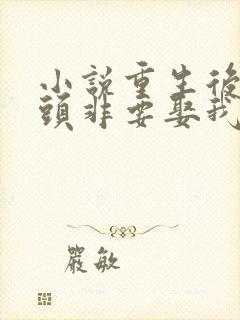 小說重生後
頭非要娶我
嚴敏